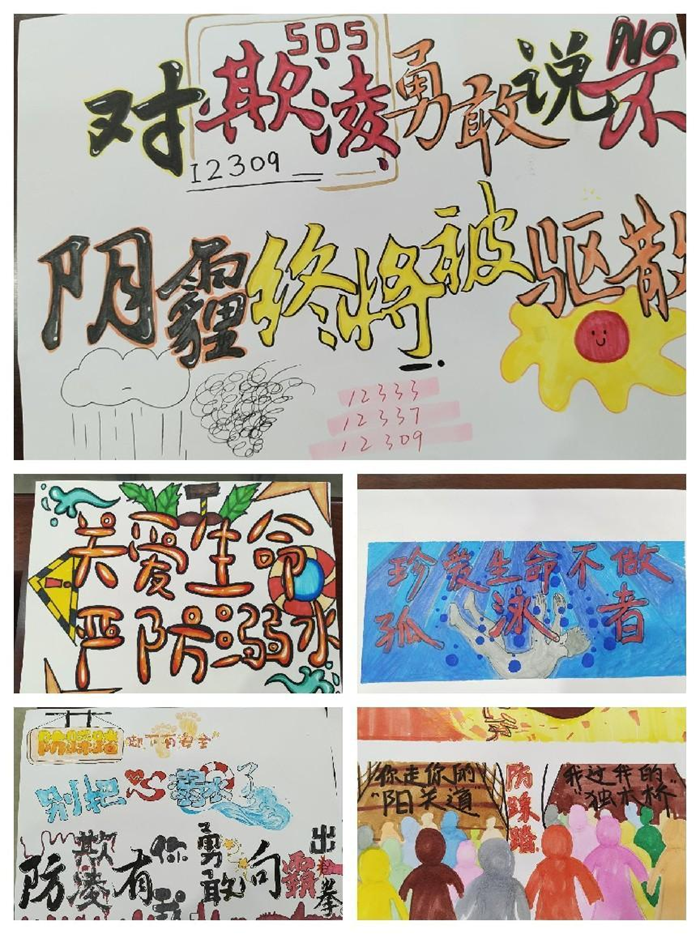 SOS
NO
对欺凌勇敢说不
12309
阴霾终将被驱散
12333
12337
12309
关爱生命
严防溺水
珍爱生命不做
孤泳者
防踩踏
脚下有安全
别把心溺水了
防欺凌有你
勇敢向霸
出拳
你走你的
"阳关道"
防踩踏
我过我的
"独木桥"